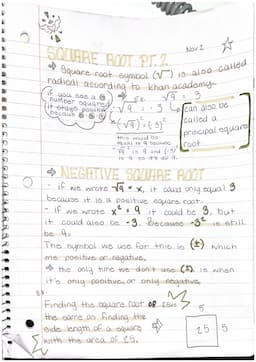 Nov 2
SQUARE ROOT PT. 2
→ Square root symbol (√) is also called
radical according to khan academy.
if you see a
number squared
it stays positive
√9 = 3
-√9 = -3
can also be
called a
principal square
root
→ NEGATIVE SQUARE ROOT
- if we wrote √9 = x, it could only equal 3
because it is a positive square root.
- if we wrote x² = 9 it could be 3, but
it could also be -3. Because -3² is still
be 9.
The symbol we use for this is (±) which
me positive or negative.
→ the only time we don't use (±) is when
it's only positive or only negative.
Finding the square root of 25 is
the same as finding the
side length of a square
with the area of 25.
5
25 5